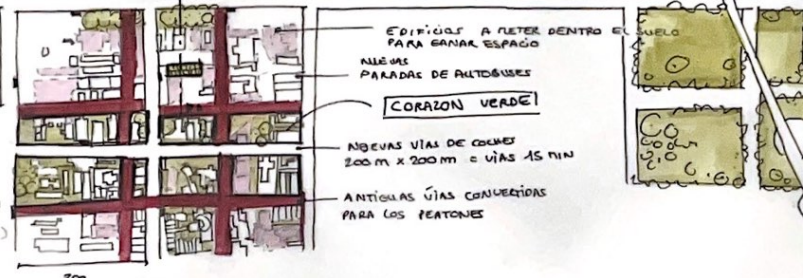 EDIFICIOS A METER DENTRO EL SUELO
PARA GANAR ESPACIO
NUEVAS
PARADAS DE AUTOBUSES
CORAZON VERDE
NUEVAS VÍAS DE COCHES
200 m x 200 m = VÍAS 15 MIN
ANTIGUAS VÍAS CONVERTIDAS
PARA LOS PEATONES
200